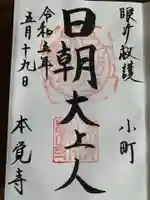 眼病救護
小町
日朝大上人
令和五年
五月十九日
本覚寺